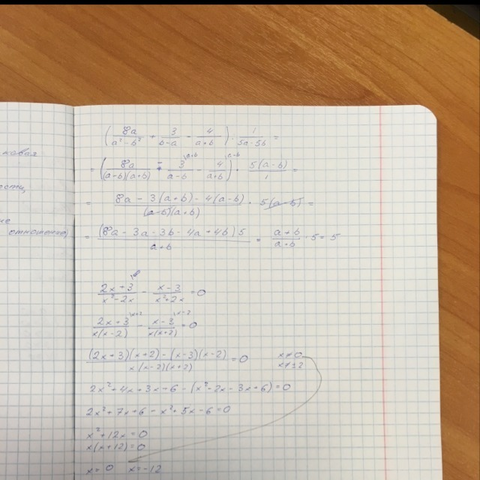 (8a/(a²-b²) + 3/(b-a) - 4/(a+b)) : 1/(5a-5b) =
= (8a/((a-b)(a+b)) - 3/(a-b) - 4/(a+b)) · 5(a-b)/1 =
= (8a - 3(a+b) - 4(a-b))/((a-b)(a+b)) · 5(a-b) =
= (8a - 3a - 3b - 4a + 4b)5/(a+b) = (a+b)/(a+b) · 5 = 5
(2x+3)/(x²-2x) - (x-3)/(x²+2x) = 0
(2x+3)/(x(x-2)) - (x-3)/(x(x+2)) = 0
((2x+3)(x+2) - (x-3)(x-2))/(x(x-2)(x+2)) = 0 x≠0
x≠±2
2x²+4x+3x-6-(x²-2x-3x+6)=0
2x²+7x+6-x²+5x-6=0
x²+12x=0
x(x+12)=0
x=0 x=-12